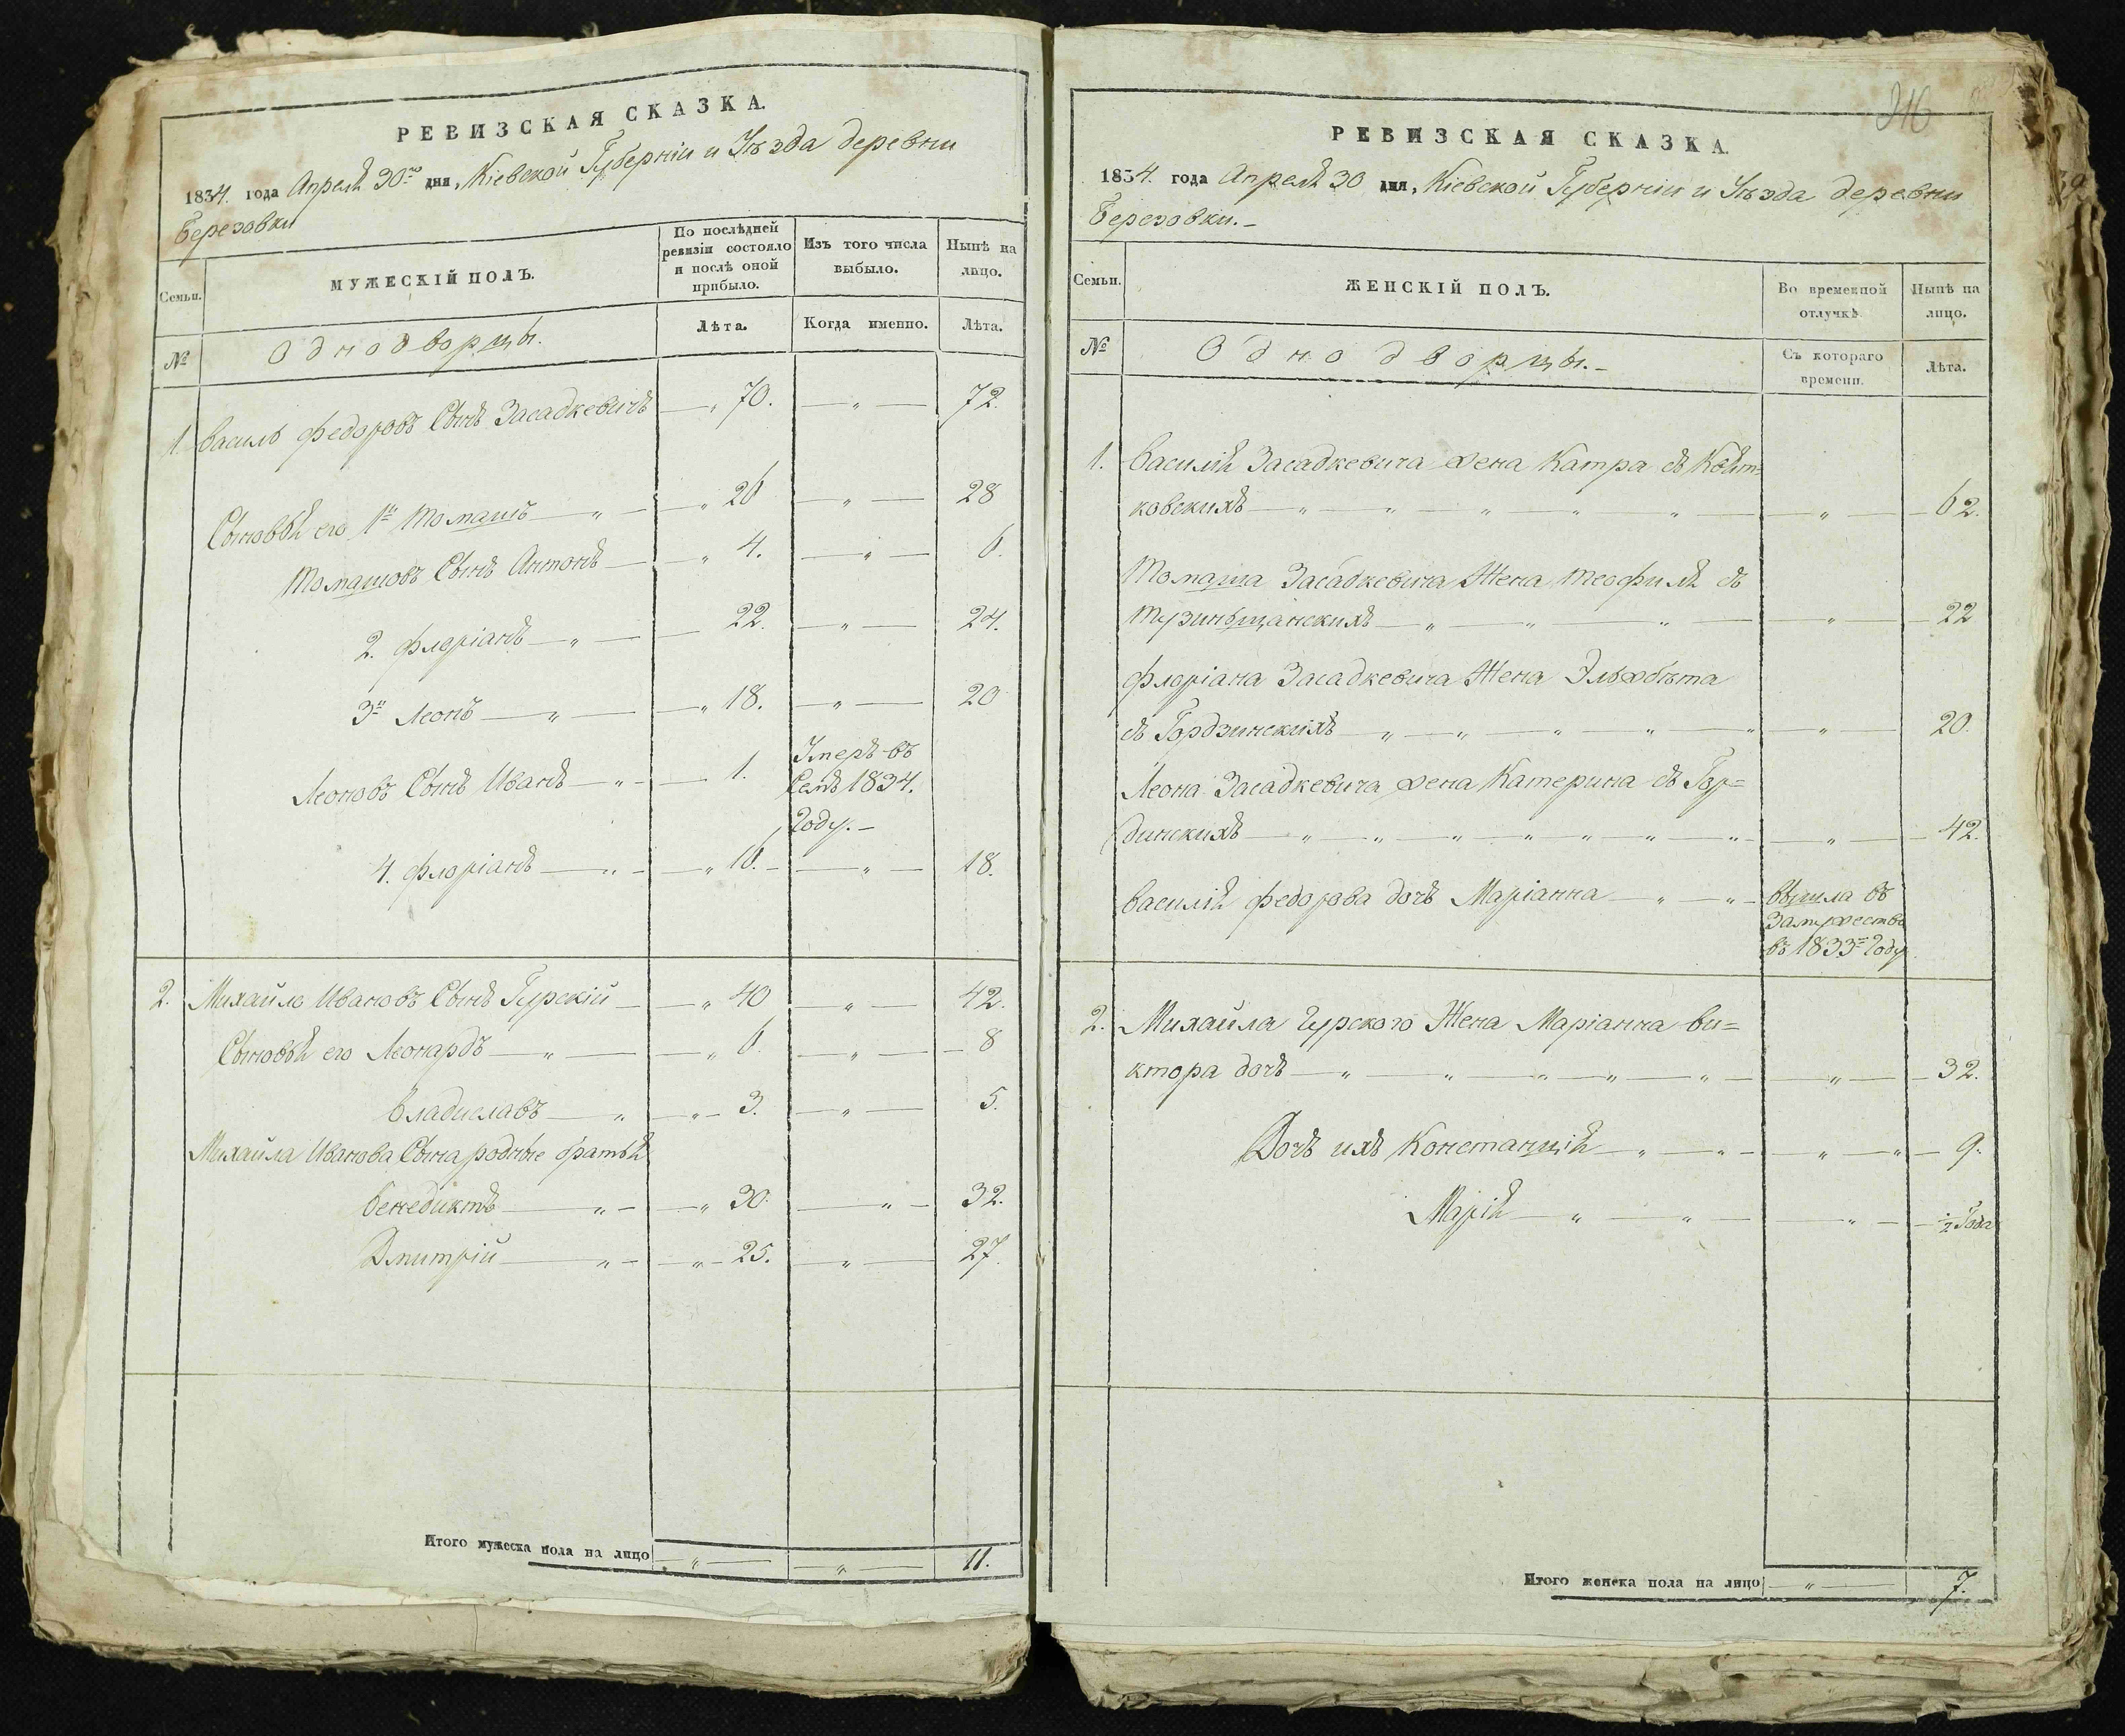 РЕВИЗСКАЯ СКАЗКА.
1834. года Апреля 30го дня, Кіевской Губерніи и Уѣзда деревни
Березовки
Семьи.
МУЖЕСКІЙ ПОЛЪ.
По послѣдней ревизіи состояло и послѣ оной прибыло.
Изъ того числа выбыло.
Нынѣ на лицо.
№
Однодворцы.
Лѣта.
Когда именно.
Лѣта.
1. Василь Федоровъ Сынъ Засадкевичъ — „ 70. — „ — 72.
Сыновья его 1й Томашъ — „ — „ 26 — „ — 28
Томашовъ Сынъ Антонъ — „ 4. — „ — 6.
2. Флоріанъ — „ — 22. — „ — 24.
3й Леонъ — „ — „ 18. — „ — 20
Леоновъ Сынъ Иванъ — „ — 1. Умеръ въ
Семъ 1834.
Году. —
4. Флоріанъ — „ — „ 16. — „ — 18.
2. Михайло Ивановъ Сынъ Гурскій — „ 40 — „ — 42.
Сыновья его Леонардъ — „ — „ 6. — „ — 8
Владиславъ — „ — „ — 3. — „ — 5.
Михайла Иванова Сына родные братья
Венедиктъ — „ — „ 30. — „ — 32.
Дмитрій — „ — „ — 25. — „ — 27.
Итого мужеска пола на лицо — „ — — „ — 11.
316
РЕВИЗСКАЯ СКАЗКА.
1834. года Апреля 30 дня, Кіевской Губерніи и Уѣзда деревни
Березовки. —
Семьи.
ЖЕНСКІЙ ПОЛЪ.
Во временной отлучкѣ.
Нынѣ на лицо.
№
Однодворцы. —
Съ котораго времени.
Лѣта.
1. Василія Засадкевича жена Катра съ
ковскихъ — „ — „ — „ — „ — „ — „ — 62.
Томаша Засадкевича Жена Теофиля съ
Тузинъщанскихъ — „ — „ — „ — „ — 22
Флоріана Засадкевича Жена Эльжбѣта
съ Гордзинскихъ — „ — „ — „ — „ — „ — „ — 20.
Леона Засадкевича жена Катерина съ Гор=
динскихъ — „ — „ — „ — „ — „ — „ — „ — „ — 42.
Василія Федорова дочь Маріанна — „ — „ — вышла въ
Замужество
въ 1833м Году
2. Михайла Гурского Жена Маріанна Ви=
ктора дочь — „ — „ — „ — „ — „ — „ — 32.
Дочь ихъ Констанція — „ — „ — „ — „ — 9.
Марія — „ — „ — „ — ½ Года
Итого женска пола на лицо — „ — 7.